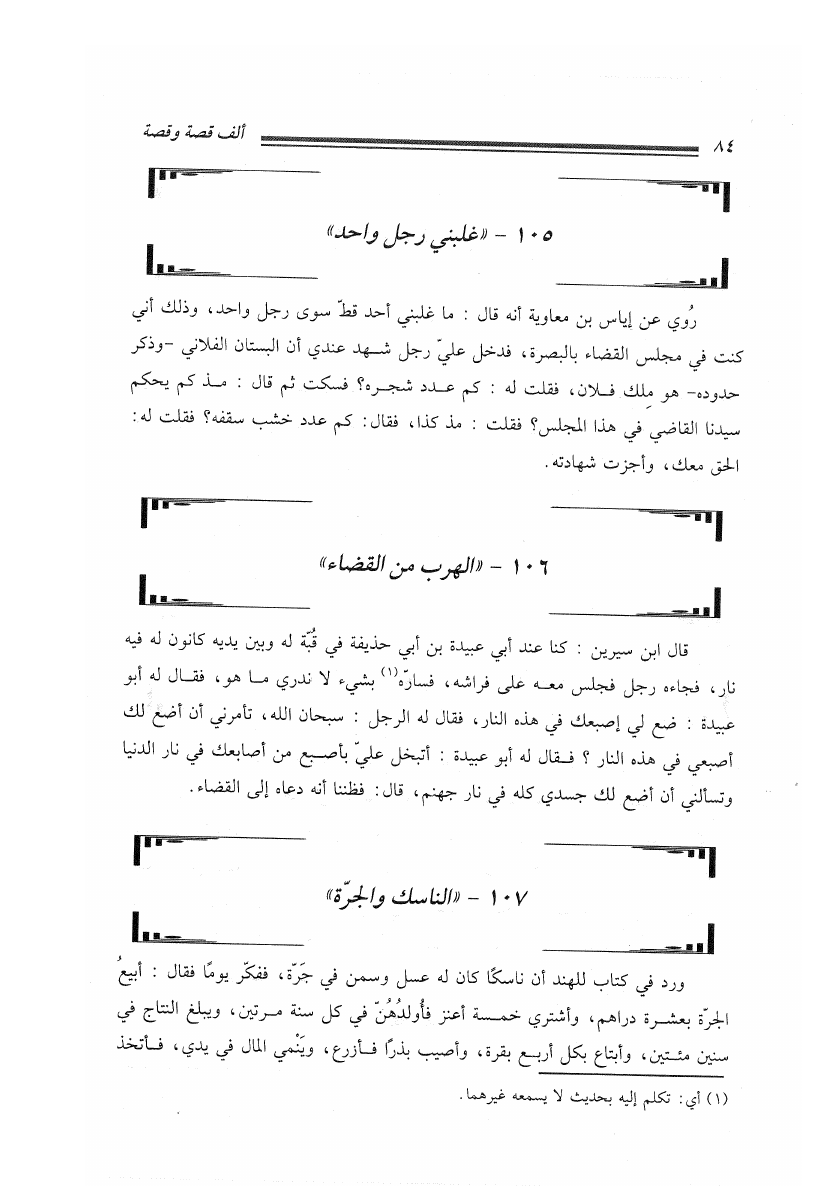 ٨٤ ألف قصة وقصة
١٠٥ – «غلبني رجل واحد»
رُوي عن إياس بن معاوية أنه قال : ما غلبني أحد قطّ سوى رجل واحد، وذلك أني
كنت في مجلس القضاء بالبصرة، فدخل عليّ رجل شهد عندي أن البستان الفلاني –وذكر
حدوده– هو مِلك فلان، فقلت له : كم عدد شجره؟ فسكت ثم قال : مذ كم يحكم
سيدنا القاضي في هذا المجلس؟ فقلت : مذ كذا، فقال: كم عدد خشب سقفه؟ فقلت له:
الحق معك، وأجزت شهادته.
١٠٦ – «الهرب من القضاء»
قال ابن سيرين : كنا عند أبي عبيدة بن أبي حذيفة في قُبّة له وبين يديه كانون له فيه
نار، فجاءه رجل فجلس معه على فراشه، فسارّه(١) بشيء لا ندري ما هو، فقال له أبو
عبيدة : ضع لي إصبعك في هذه النار، فقال له الرجل : سبحان الله، تأمرني أن أضع لك
أصبعي في هذه النار ؟ فقال له أبو عبيدة : أتبخل عليّ بأصبع من أصابعك في نار الدنيا
وتسألني أن أضع لك جسدي كله في نار جهنم، قال: فظننا أنه دعاه إلى القضاء.
١٠٧ – «الناسك والجرّة»
ورد في كتاب للهند أن ناسكًا كان له عسل وسمن في جَرّة، ففكّر يومًا فقال : أبيعُ
الجرّة بعشرة دراهم، وأشتري خمسة أعنز فأُولدُهُنّ في كل سنة مرتين، ويبلغ النتاج في
سنين مئتين، وأبتاع بكل أربع بقرة، وأصيب بذرًا فأزرع، ويَنْمي المال في يدي، فأتخذ
(١) أي: تكلم إليه بحديث لا يسمعه غيرهما.